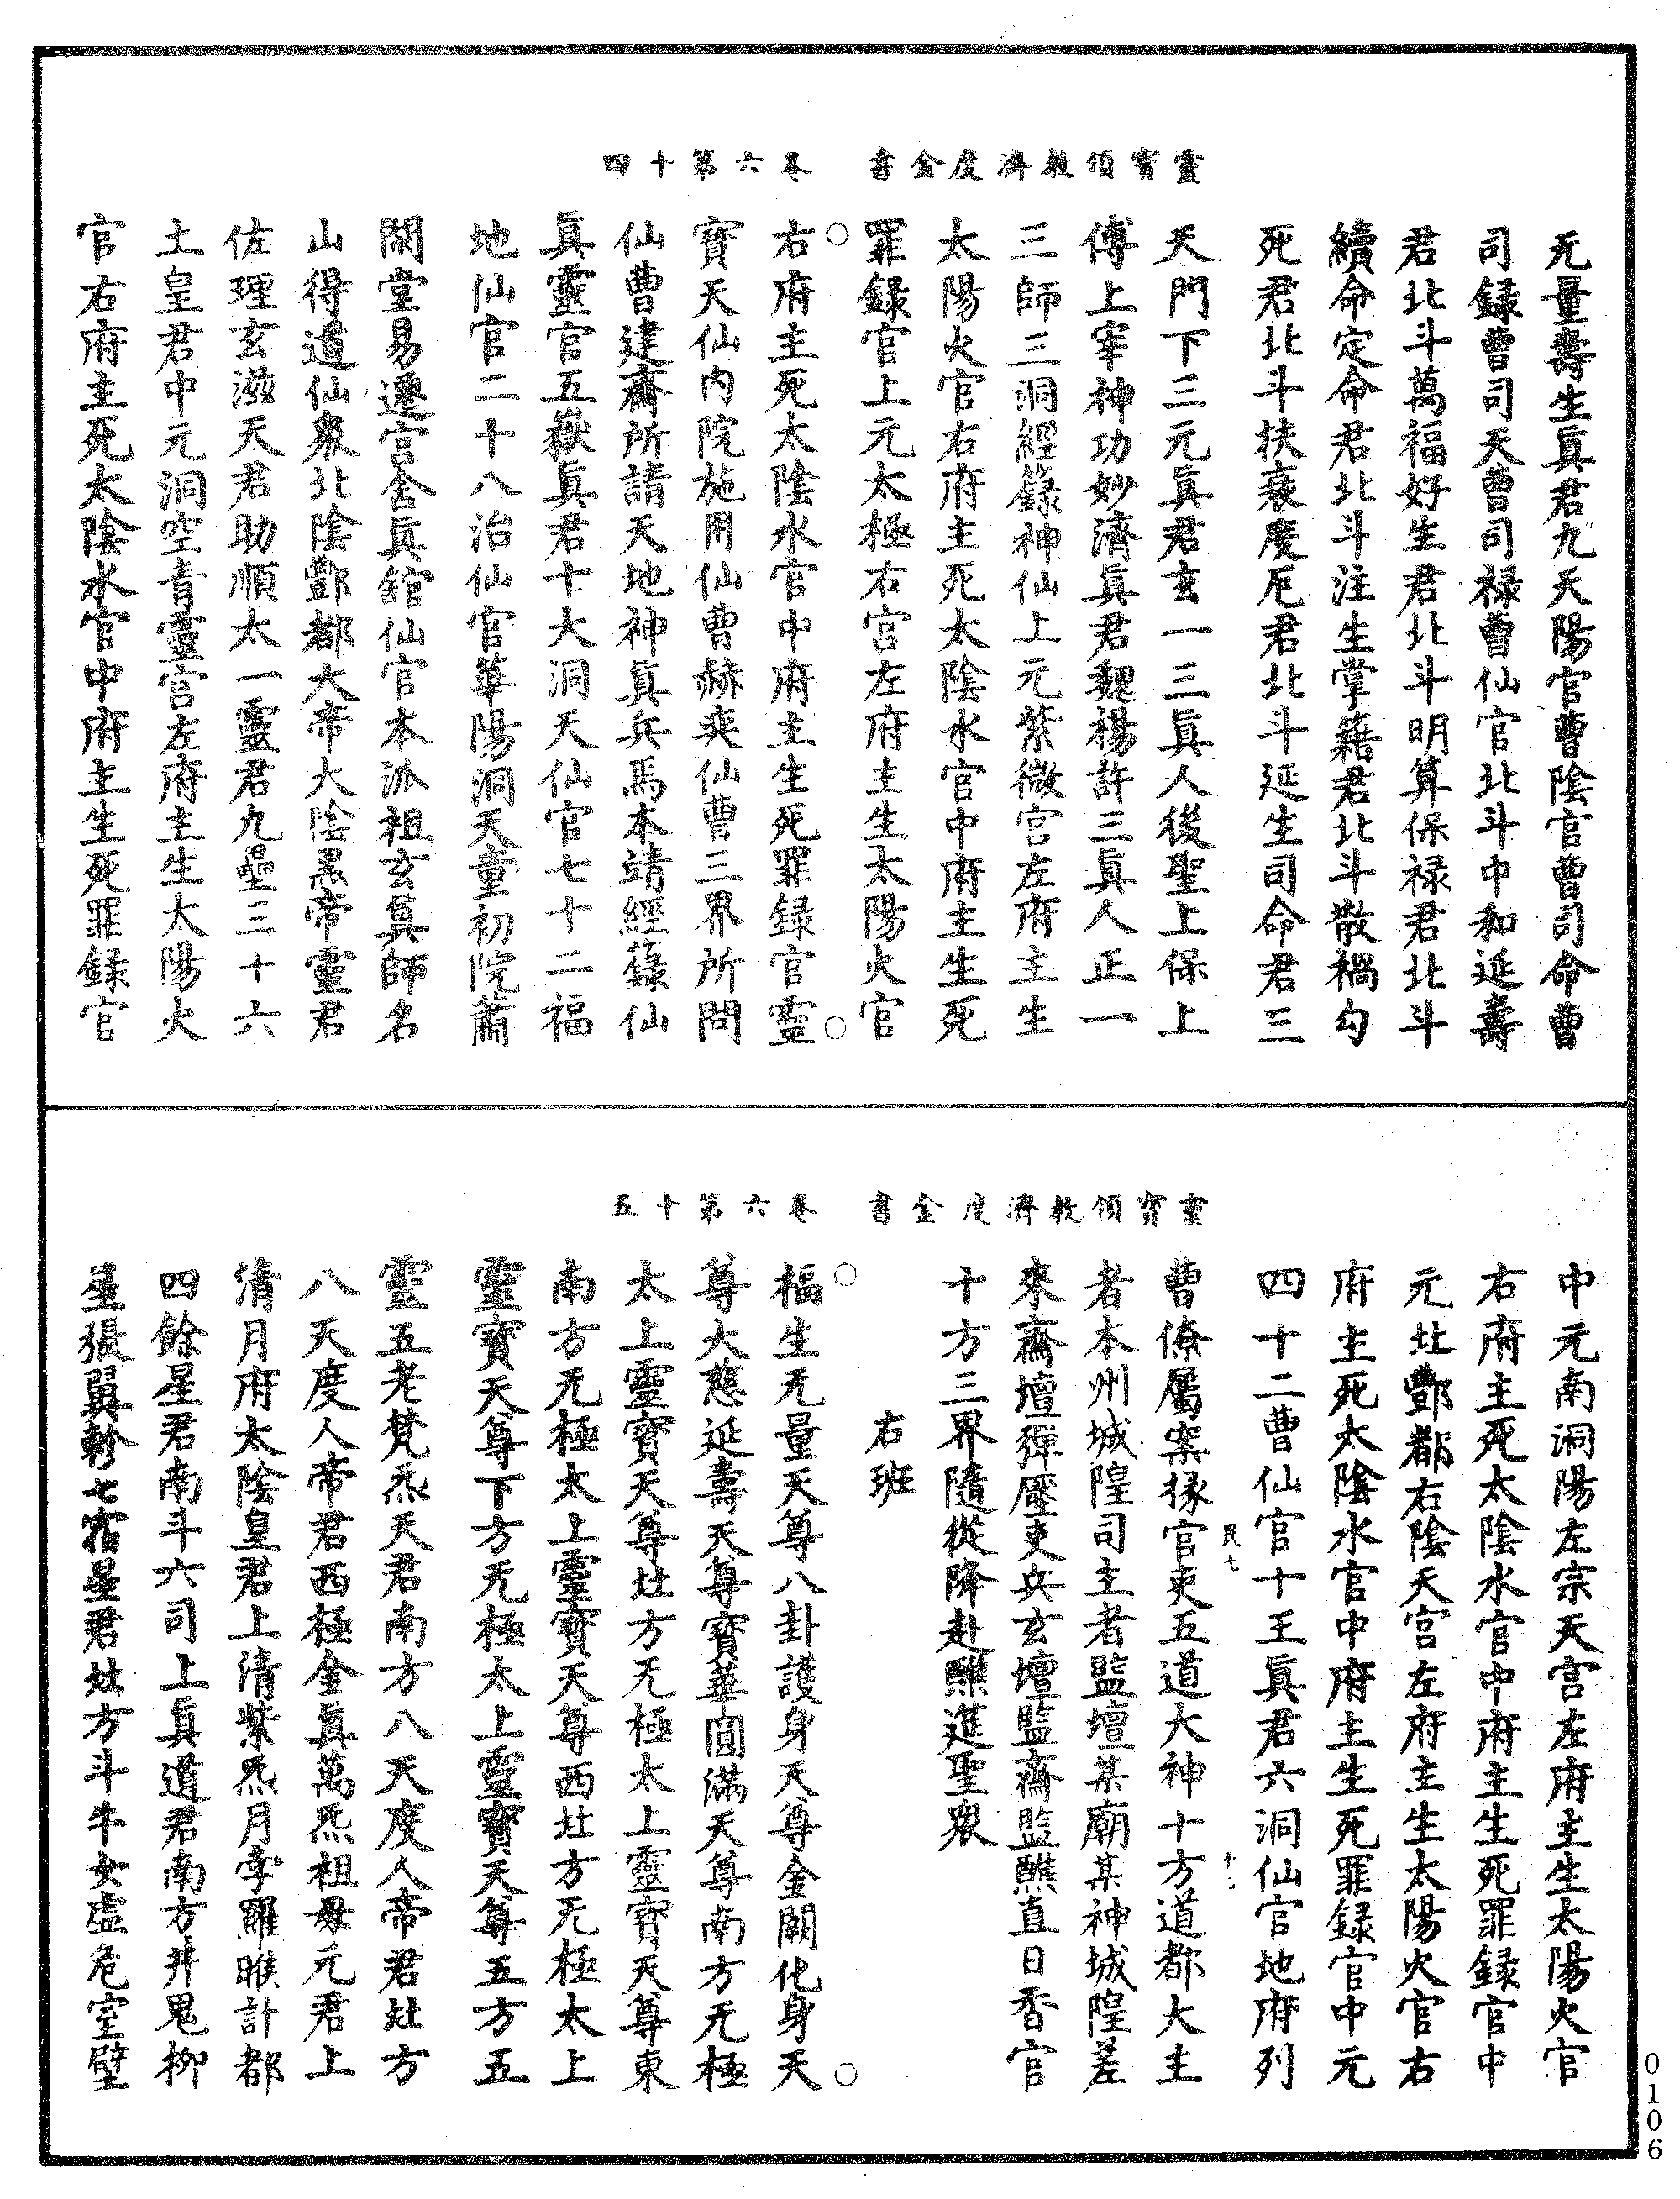 靈寶領教濟度金書　卷六第十四
无量壽生眞君九天陽官曹陰官曹司命曹
司録曹司天曹司禄曹仙官北斗中和延壽
君北斗萬福好生君北斗明算保禄君北斗
續命定命君北斗注生掌籍君北斗散禍勾
死君北斗扶衰度厄君北斗延生司命君三
天門下三元眞君玄一三眞人後聖上保上
傅上宰神功妙濟眞君魏楊許三眞人正一
三師三洞經籙神仙上元紫微宮左府主生
太陽火官右府主死太陰水官中府主生死
罪録官上元太極右宮左府主生太陽火官
右府主死太陰水官中府主生死罪録官靈
寶天仙內院施用仙曹赫奕仙曹三界所問
仙曹建齋所請天地神眞兵馬本靖經籙仙
眞靈官五嶽眞君十大洞天仙官七十二福
地仙官二十八治仙官華陽洞天童初院蕭
閒堂易遷宮含眞館仙官本派祖玄眞師名
山得道仙衆北陰酆都大帝大陰黑帝靈君
佐理玄滋天君助順太一靈君九壘三十六
土皇君中元洞空青靈宮左府主生太陽火
官右府主死太陰水官中府主生死罪録官
靈寶領教濟度金書　卷六第十五
中元南洞陽左宗天宮左府主生太陽火官
右府主死太陰水官中府主生死罪録官中
元北酆都右陰天宮左府主生太陽火官右
府主死太陰水官中府主生死罪録官中元
四十二曹仙官十王眞君六洞仙官地府列
民七
十二
曹僚屬案掾官吏五道大神十方道都大主
者本州城隍司主者監壇某廟某神城隍差
來齋壇彈壓吏兵玄壇監齋監醮直日香官
十方三界隨從降赴醮進聖衆
右班
福生无量天尊八卦護身天尊金闕化身天
尊大慈延壽天尊寶華圓滿天尊南方无極
太上靈寶天尊北方无極太上靈寶天尊東
南方无極太上靈寶天尊西北方无極太上
靈寶天尊下方无極太上靈寶天尊五方五
靈五老梵炁天君南方八天度人帝君北方
八天度人帝君西極金眞萬炁祖母元君上
清月府太陰皇君上清紫炁月孛羅睺計都
四餘星君南斗六司上眞道君南方井鬼柳
星張翼軫七宿星君北方斗牛女虛危室壁
0106